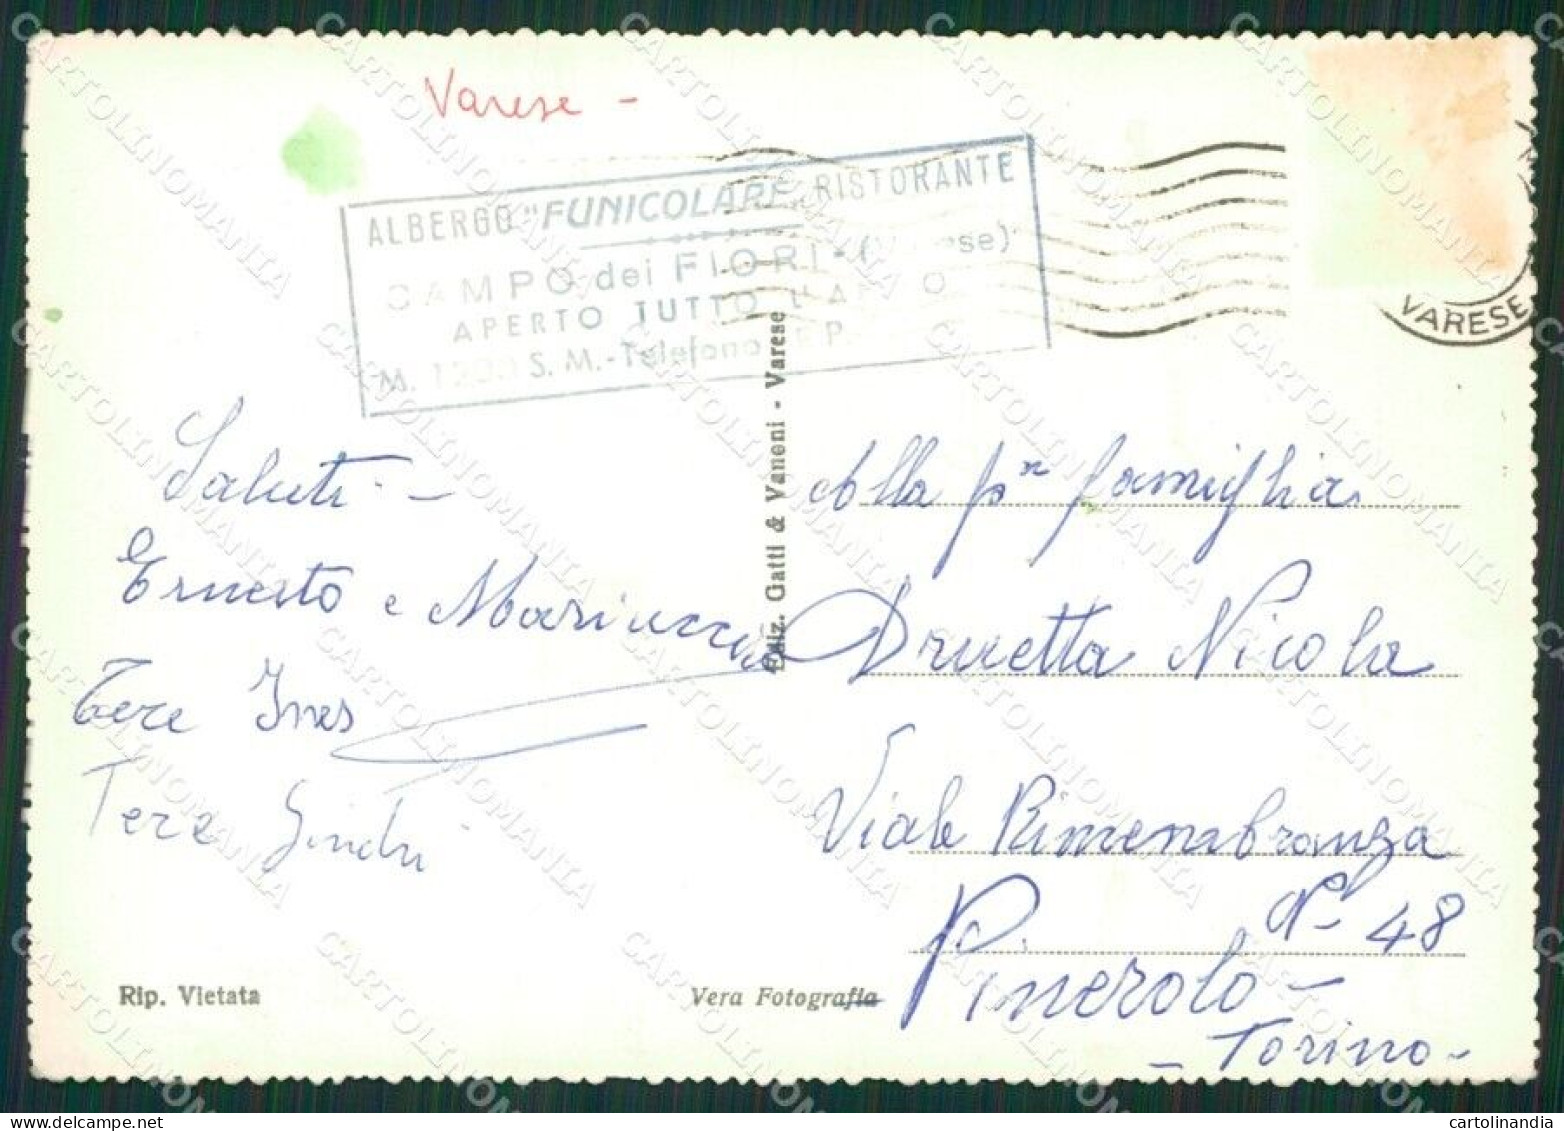 Varese -
ALBERGO "FUNICOLARE" RISTORANTE
CAMPO dei FIORI - (Varese)
APERTO TUTTO L'ANNO
M. 1200 S. M. - Telefono P.
VARESE
Saluti -
Ernesto e Mariuccia
Tere Ines
Tere
Ediz. Gatti & Vanoni - Varese
Alla fam famiglia
Druetta Nicola
Viale Rimembranza
N- 48
Pinerolo -
- Torino -
Rip. Vietata
Vera Fotografia
CARTOLINOMANIA
www.cartolinomania.com
cartolinandia